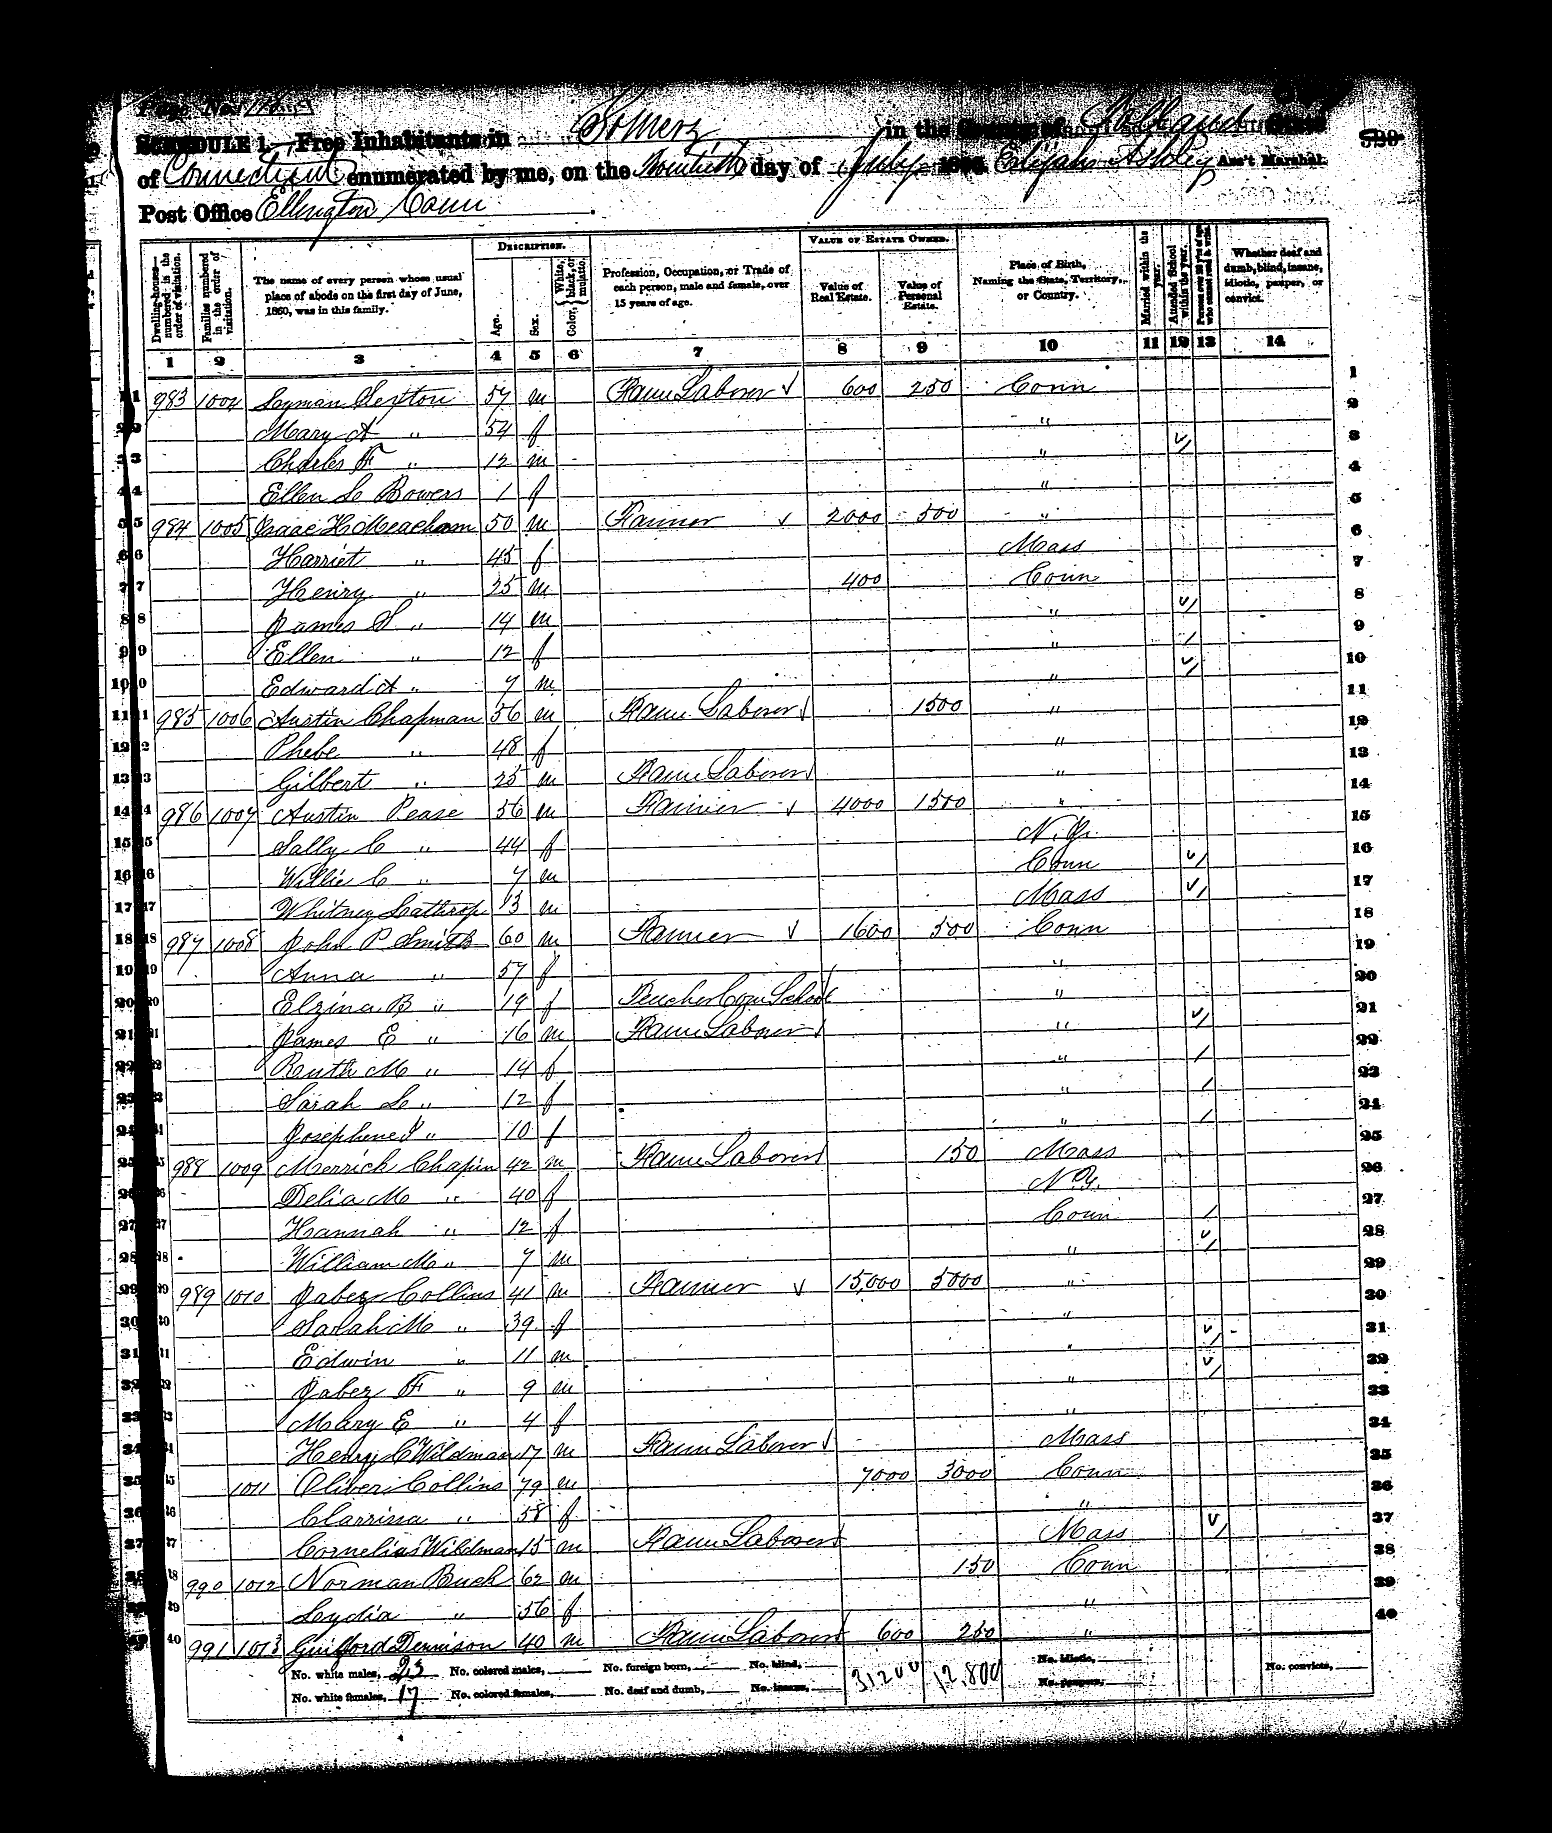 Page No.
SCHEDULE 1.—Free Inhabitants in Somers in the County of Tolland State
of Connecticut enumerated by me, on the Twentieth day of July 1860. Elijah Ashley Ass't Marshal.
Post Office Ellington Conn
DESCRIPTION. VALUE OF ESTATE OWNED.
Dwelling-houses—numbered in the order of visitation. Families numbered in the order of visitation. The name of every person whose usual place of abode on the first day of June, 1860, was in this family. Age. Sex. Color, White, black, or mulatto. Profession, Occupation, or Trade of each person, male and female, over 15 years of age. Value of Real Estate. Value of Personal Estate. Place of Birth, Naming the State, Territory, or Country. Married within the year. Attended School within the year. Persons over 20 y'rs of age who cannot read & write. Whether deaf and dumb, blind, insane, idiotic, pauper, or convict.
1 2 3 4 5 6 7 8 9 10 11 12 13 14
1 983 1004 Lyman Sexton 57 m Farm Laborer 600 250 Conn 1
2 Mary A " 54 f " 2
3 Charles F " 12 m " 3
4 Ellen L Bowers 1 f " 4
5 984 1005 Isaac H Meacham 50 m Farmer 2000 500 " 5
6 Harriet " 45 f Mass 6
7 Henry " 25 m 400 Conn 7
8 James S " 14 m " 8
9 Ellen " 12 f " 9
10 Edward A " 7 m " 10
11 985 1006 Austin Chapman 56 m Farm Laborer 1500 " 11
12 Phebe " 48 f " 12
13 Gilbert " 25 m Farm Laborer " 13
14 986 1007 Austin Pease 56 m Farmer 4000 1500 " 14
15 Sally C " 44 f N. Y. 15
16 Willie C " 7 m Conn 16
17 Whitney Lathrop 13 m Mass 17
18 987 1008 John P Smith 60 m Farmer 1600 500 Conn 18
19 Anna " 57 f " 19
20 Elzina B " 19 f Teacher Com School " 20
21 James E " 16 m Farm Laborer " 21
22 Ruth M " 14 f " 22
23 Sarah L " 12 f " 23
24 Josephine I " 10 f " 24
25 988 1009 Merrick Chapin 42 m Farm Laborer 150 Mass 25
26 Delia M " 40 f N. Y. 26
27 Hannah " 12 f Conn 27
28 William M " 7 m " 28
29 989 1010 Jabez Collins 41 m Farmer 15,000 5000 " 29
30 Sarah M " 39 f " 30
31 Edwin " 11 m " 31
32 Jabez F " 9 m " 32
33 Mary E " 4 f " 33
34 Henry C Wildman 17 m Farm Laborer Mass 34
35 1011 Oliver Collins 79 m 7000 3000 Conn 35
36 Clarrissa " 58 f " 36
37 Cornelius Wildman 15 m Farm Laborer Mass 37
38 990 1012 Norman Buck 62 m 150 Conn 38
39 Lydia " 56 f " 39
40 991 1013 Guilford Dennison 40 m Farm Laborer 600 250 " 40
No. white males, 23 No. colored males, No. foreign born, No. blind, 31200 12,800 No. idiotic, No. convicts,
No. white females, 17 No. colored females, No. deaf and dumb, No. insane, No. paupers,